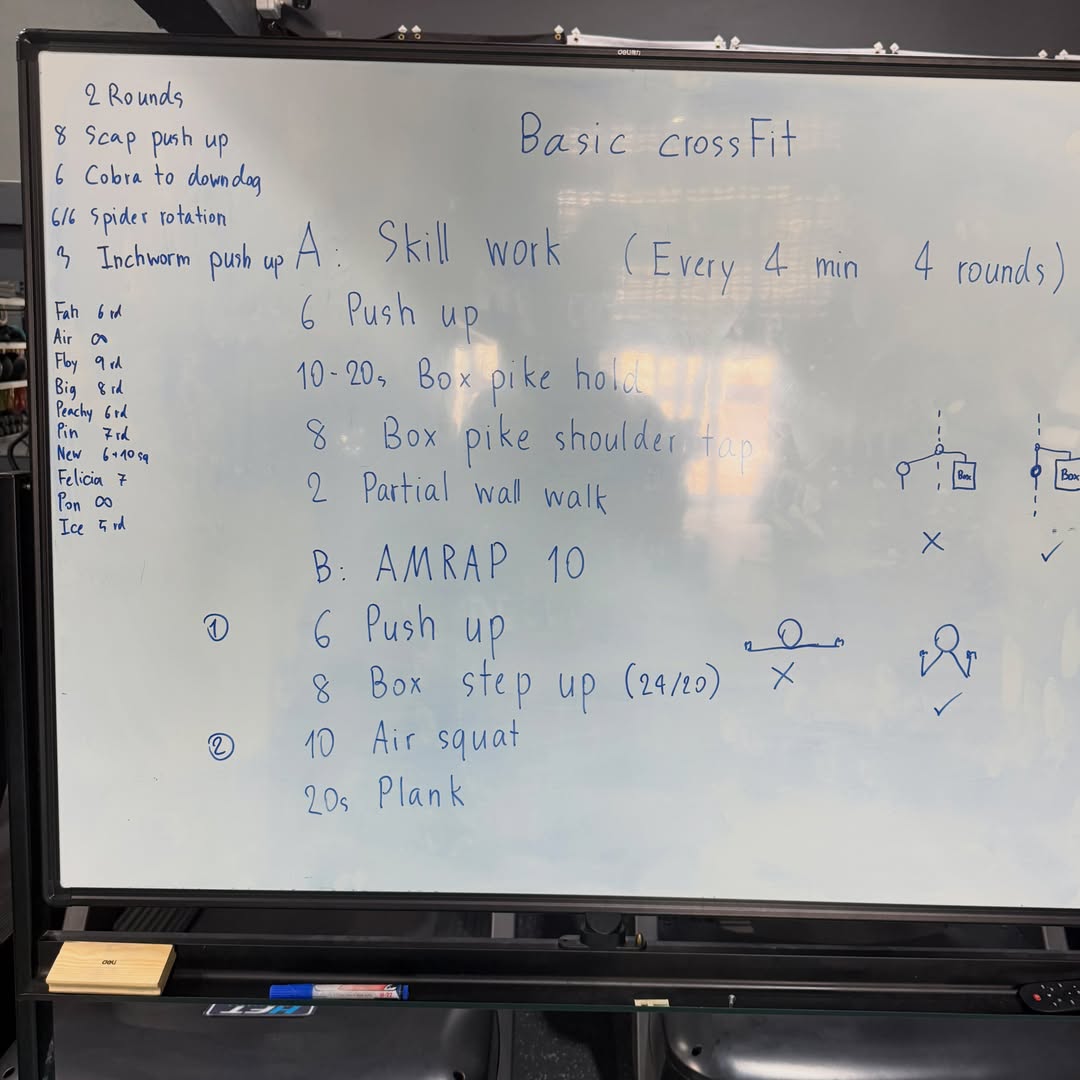 DELI
2 Rounds
8 Scap push up
6 Cobra to downdog
6/6 Spider rotation
3 Inchworm push up
Fah 6rd
Air ∞
Floy 9rd
Big 8rd
Peachy 6rd
Pin 7rd
New 6+10sq
Felicia 7
Pon ∞
Ice 5rd
Basic crossFit
A: Skill work (Every 4 min 4 rounds)
6 Push up
10-20s Box pike hold
8 Box pike shoulder tap
2 Partial wall walk
Box
Box
X ✓
B: AMRAP 10
① 6 Push up
8 Box step up (24/20)
X ✓
② 10 Air squat
20s Plank
deli
HFT